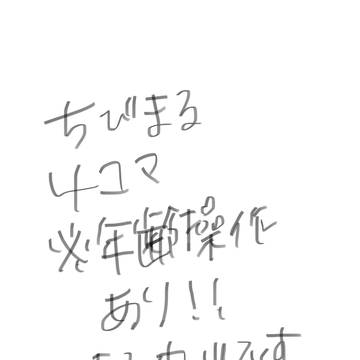 ちびまる
4コマ
※年齢操作
あり!!